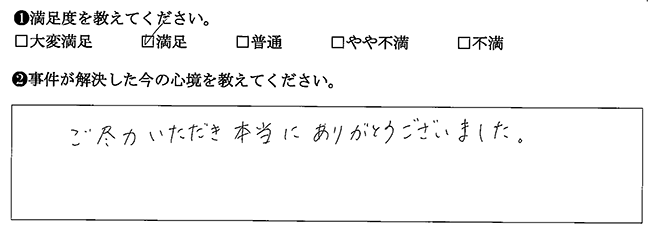 ❶満足度を教えてください。
□大変満足 ☑満足 □普通 □やや不満 □不満
❷事件が解決した今の心境を教えてください。
ご尽力いただき本当にありがとうございました。